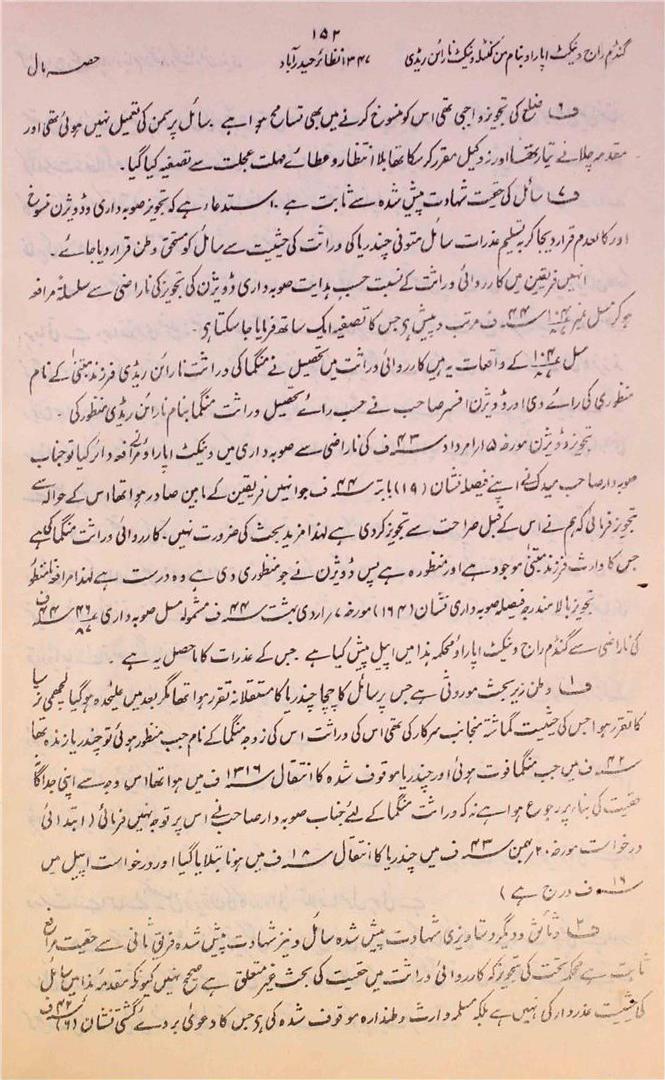 ۱۵۲
گنڈم راج و نیکٹ اپاراو بنام من کنٹلہ ونیکٹ نارائن ریڈی ۱۳۴۷ نظائر حیدرآباد حصہ مال
ف۶ ضلع کی تجویز واجبی تھی اس کو منسوخ کرنے میں بھی تسامح ہوا ہے ۔ سائل پر سمن کی تعمیل نہیں ہوئی تھی اور
مقدمہ چلانے تیار تھا اور نہ وکیل مقرر کرسکا تھا بلا انتظار و عطائے مہلت عجلت سے تصفیہ کیا گیا ۔
ف۷ سائل کی حقیت شہادت پیش شدہ سے ثابت ہے ۔ استدعاء ہے کہ تجویز صوبہ داری و ڈویژن منسوخ
اور کالعدم قرار دیجا کر بہ تسلیم عذرات سائل متوفی چندریا کی وراثت کی حیثیت سے سائل کو مستحق وطن قرار دیا جائے ۔
انہیں فریقین میں کارروائی وراثت کے نسبت حسب ہدایت صوبہ داری ڈویژن کی تجویز کی ناراضی سے سلسلہ مرافعہ
ہوکر مسل ۱۰۴ ۴۴ ف مرتب و پیش ہے جس کا تصفیہ ایک ساتھ فرمایا جاسکتا ہے ۔
مسل ۱۰۴ کے واقعات یہ ہیں کارروائی وراثت میں تحصیل نے منگما کی وراثت نارائن ریڈی فرزند متبنیٰ کے نام
منظوری کی رائے دی اور ڈویژن افسر صاحب نے حسب رائے تحصیل وراثت منگما بنام نارائن ریڈی منظور کی ۔
تجویز ڈویژن مورخہ ۱۵ امرداد ۴۳ ف کی ناراضی سے صوبہ داری میں ونیکٹ اپاراو نے مرافعہ دائر کیا تو جناب
صوبہ دار صاحب میدک نے اپنے فیصلہ نشان (۱۹) بابتہ ۴۴ ف جو انہیں فریقین کے مابین صادر ہوا تھا اس کے حوالہ سے
تجویز فرمائی کہ ہم نے اس کے قبل صراحت سے تجویز کردی ہے لہذا مزید بحث کی ضرورت نہیں ۔ کارروائی وراثت منگما کی ہے
جس کا وارث فرزند متبنیٰ موجود ہے اور منظورہ ہے پس ڈویژن نے جو منظوری دی ہے وہ درست ہے لہذا مرافعہ نامنظور
تجویز بالا مندرجہ فیصلہ صوبہ داری نشان (۱۶۴) مورخہ ۷ اردی بہشت ۴۴ ف مشمولہ مسل صوبہ داری ۴۶ ۴۴ ف
کی ناراضی سے گنڈم راج ونیکٹ اپاراو محکمہ ہذا میں اپیل پیش کیا ہے ۔ جس کے عذرات کا ماحصل یہ ہے ۔
ف۱ وطن زیر بحث موروثی ہے جس پر سائل کا چچا چندریا کا مستقلانہ تقرر ہوا تھا مگر بعد میں علیحدہ ہوگیا لچھمی نرسیا
کا تقرر ہوا جس کی حیثیت گماشتہ منجانب سرکار کی تھی اس کی وراثت اس کی زوجہ منگما کے نام جب منظور ہوئی تو چندریا زندہ تھا
۴۲ ف میں جب منگما فوت ہوئی اور چندریا موقوف شدہ کا انتقال ۱۳۱۶ ف میں ہوا تھا اس وجہ سے اپنی جداگانہ
حقیت کی بناء پر رجوع ہوا ہے نہ کہ وراثت منگما کے لئے جناب صوبہ دار صاحب نے اس پر توجہ نہیں فرمائی (ابتدائی
درخواست مورخہ ۲۰ بہمن ۴۳ ف میں چندریا کا انتقال ۱۸ ف میں ہونا بتلایا گیا اور درخواست اپیل میں
۱۶ ف درج ہے )
ف۲ وثائق و دیگر دستاویزی شہادت پیش شدہ سائل و نیز شہادت پیش شدہ فریق ثانی سے حقیت
ثابت ہے محکمہ تحت کی تجویز کہ کارروائی وراثت میں حقیت کی بحث غیر متعلق ہے صحیح نہیں کیونکہ مقدمہ ہذا میں سائل
کی حیثیت عذردار کی نہیں ہے بلکہ مسلمہ وارث وطندارہ موقوف شدہ کی ہے جس کا دعویٰ بروئے گشتی نشان (۶) ۴۲ ف